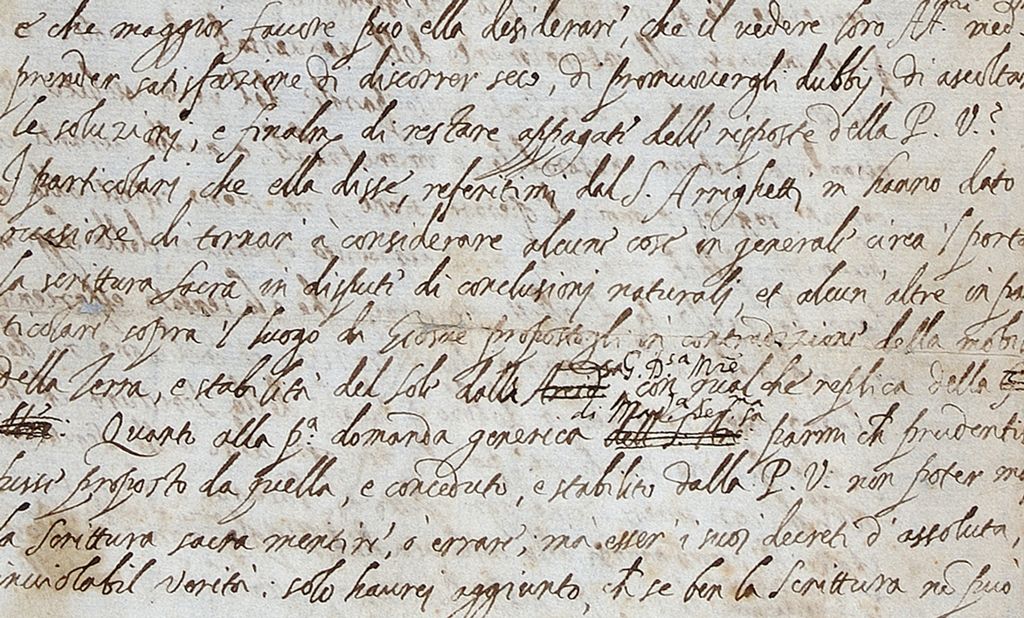 e che maggior favore può ella desiderare, che il vedere loro AA.
prender satisfazione di discorrer seco, di promuovergli dubbij, di ascoltar
le soluzionj, e finalm. di restare appagate delle risposte della P. V.?
I particolarj che ella disse, referitimi dal S. Arrighetti, m'hanno dato
occasione di tornar à considerare alcune cose in generale circa 'l porta
la scrittura sacra in dispute di conclusionj naturalj, et alcun' altre in pa
ticolare sopra 'l luogo di Giosuè propostogli in contradizione della mobil
della Terra, e stabilità del sole dalla G. D.sa M.re con qual che replica della
di M. Ser.ma
Quanto alla p.a domanda generica parmi ch prudentis
fusse proposto da quella, e conceduto, e stabilito dalla P. V. non poter ma
la scrittura sacra mentire, ò errare, ma esser i suoi decreti d'assoluta,
inviolabil verità; solo haurej aggiunto, ch se ben la Scrittura nõ può